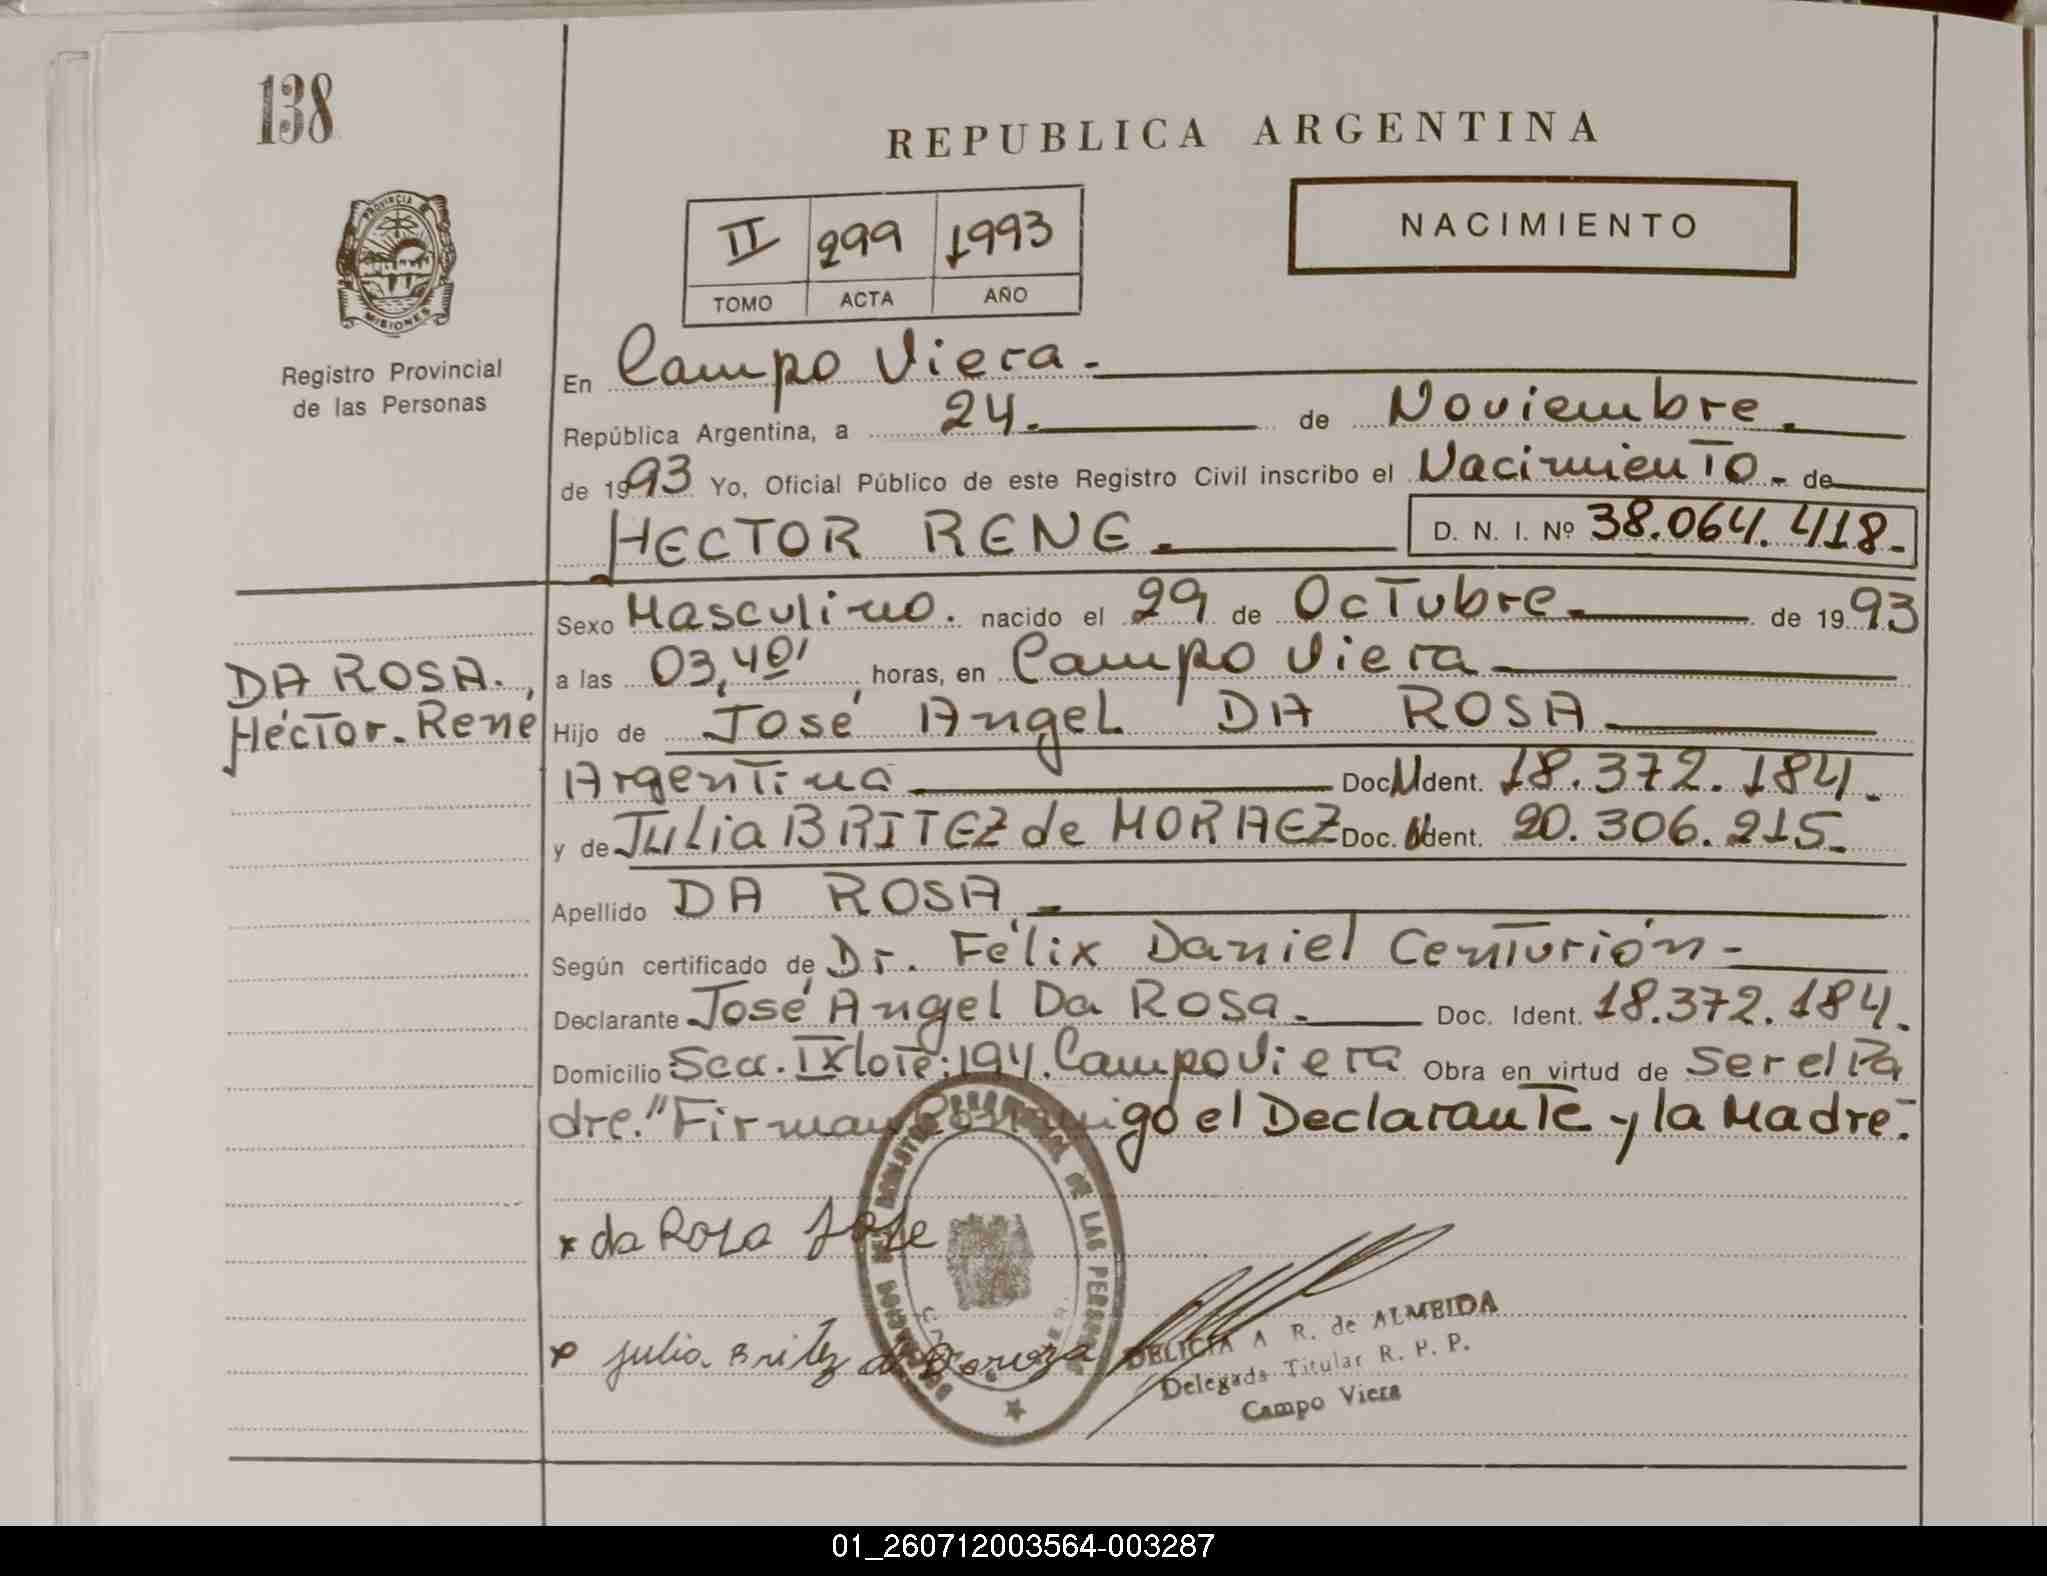 138
REPUBLICA ARGENTINA
NACIMIENTO
II 299 1993
TOMO ACTA AÑO
PROVINCIA DE
MISIONES
Registro Provincial
de las Personas
En Campo Viera.-
República Argentina, a 24. de Noviembre.
de 1993 Yo, Oficial Público de este Registro Civil inscribo el Nacimiento- de
HECTOR RENE. D. N. I. Nº 38.064.418.-
Sexo Masculino. nacido el 29 de Octubre.- de 1993
a las 03,40' horas, en Campo Viera
DA ROSA.,
Héctor-René
Hijo de José Angel DA ROSA
Argentina Doc. N Ident. 18.372.184.-
y de Julia BRITEZ de MORAEZ Doc. N Ident. 20.306.215.-
Apellido DA ROSA.-
Según certificado de Dr. Félix Daniel Centurión-
Declarante José Angel Da Rosa. Doc. Ident. 18.372.184.
Domicilio Secc. IX lote: 194. Campo Viera Obra en virtud de Ser el Pa
dre." Firman conmigo el Declarante y la Madre.-
DE LAS PERSONAS
x da Rosa Jose
x Julia Britez de
DELICIA A R. de ALMEIDA
Delegada Titular R. P. P.
Campo Viera
01_260712003564-003287